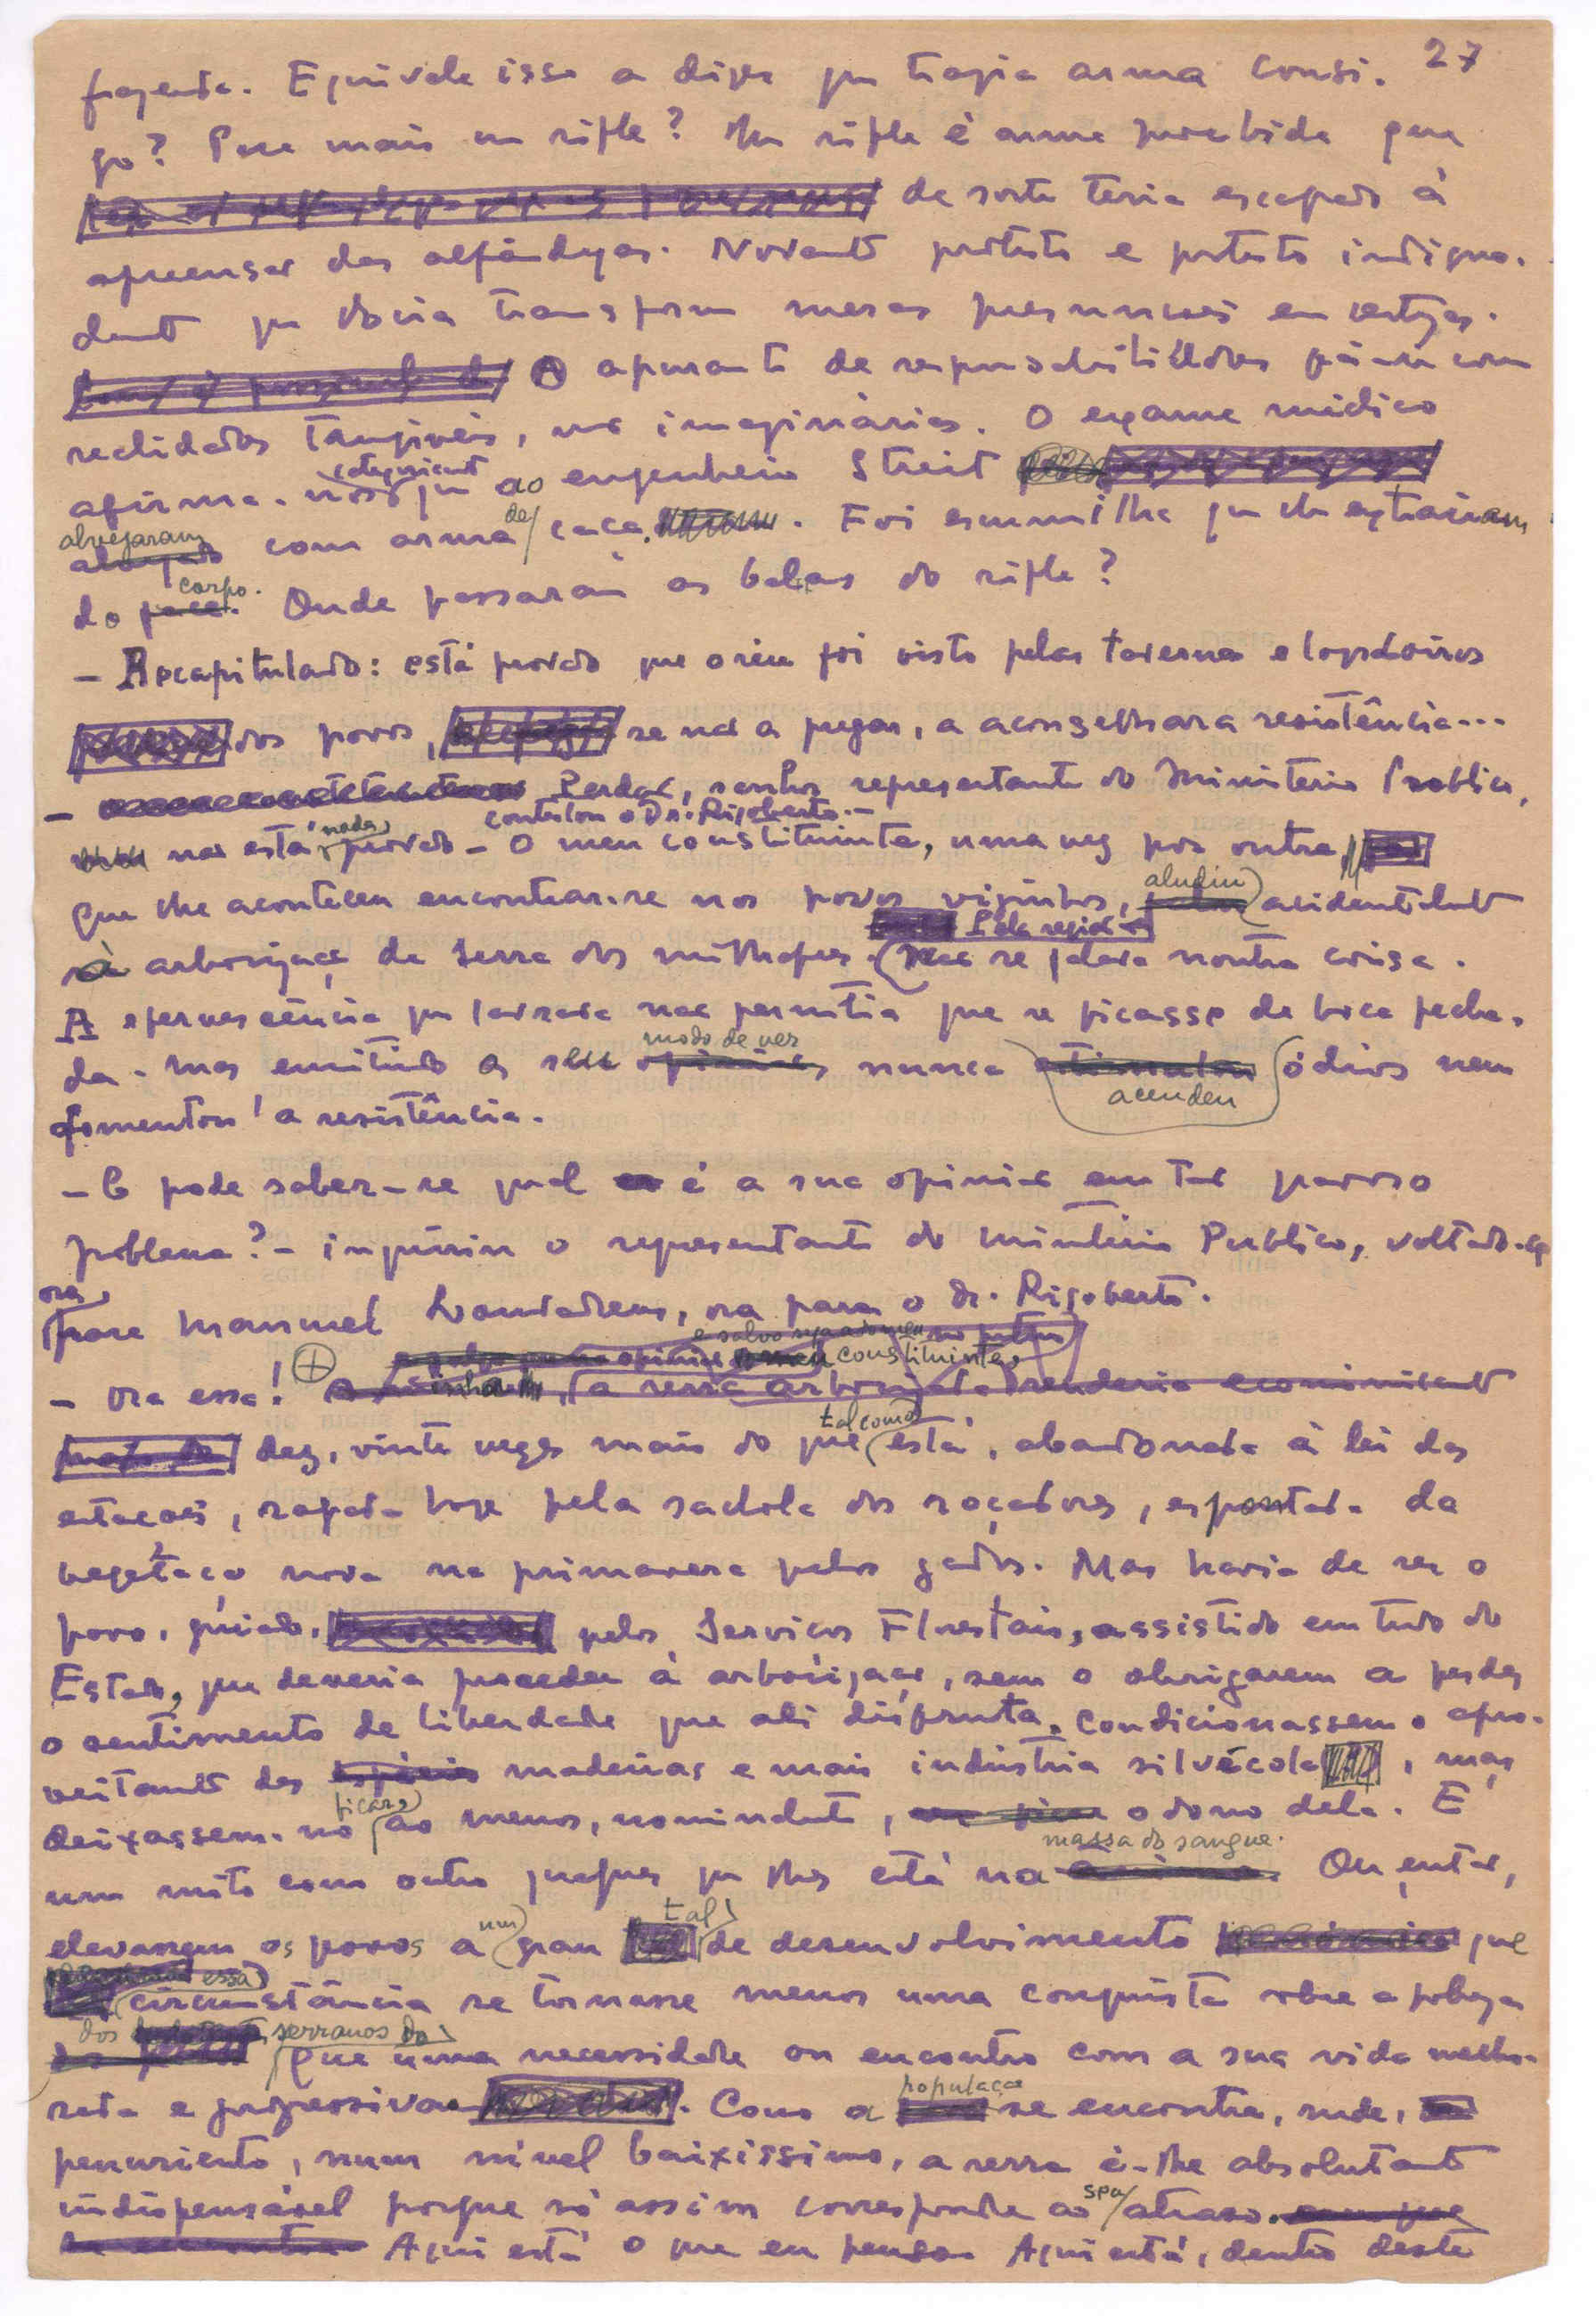 27
fazenda. Equivale isso a dizer que trazia arma consi-
go? Para mais um rifle? Um rifle é arma proibida que
de sorte teria escapado à
apreensão das alfândegas. Novamente protesto e protesto indigna-
damente que se transforme meras presunções em certezas.
O apuramento de responsabilidades com
realidades tangíveis, não imaginárias. O exame médico
afirma-nos categoricamente que ao engenheiro Streit
alvejaram com arma de caça. Foi escumilha que lhe extraíram
do corpo. Onde passaram as balas do rifle?
– Recapitulando: está provado que o réu foi visto pelas tavernas e logradoiros
dos povos, se não a pregar, a aconselhar a resistência...
– Perdão, senhor representante do Ministério Público,
não está nada provado – contestou o Dr. Rigoberto. – O meu constituinte, uma vez por outra
que lhe aconteceu encontrar-se nos povos vizinhos, aludiu acidentalmente
à arborização da Serra dos Milhafres. Pela região não se falava noutra coisa.
A efervescência que lavrava não permitia que se ficasse de boca fecha-
da. Mas emitindo o seu modo de ver nunca acendeu ódios nem
fomentou a resistência.
– E pode saber-se qual é a sua opinião em tão
problema? – inquiriu o representante do Ministério Público, voltando-se
ora para Manuel Louvadeus, ora para o dr. Rigoberto.
– Ora essa! a serra arborizada renderia economicamente
dez, vinte vezes mais do que tal como está, abandonada à lei das
estações, rapada hoje pela sachola dos roçadores, espontada da
vegetação nova na primavera pelos gados. Mas havia de ser o
povo, guiado pelos Serviços Florestais, assistido em tudo do
Estado, que deveria proceder à arborização, sem o obrigarem a perder
o sentimento de liberdade que ali disfruta. Condicionassem o apro-
veitamento das madeiras e mais indústria silvícola, mas
deixassem-no ficar ao menos, nominalmente, o dono dela. É
um mito com outro qualquer que lhes está na massa do sangue. Ou, então,
elevassem os povos a um grau tal de desenvolvimento que
essa circunstância se tornasse menos uma conquista sobre a pobreza
dos serranos do que uma necessidade ou encontro com a sua vida melho-
rada e progressiva. Como a população se encontra, rude,
penurienta, num nível baixíssimo, a serra é-lhe absolutamente
indispensável porque só assim corresponde ao seu atraso.
Aqui está o que eu penso. Aqui está, dentro deste